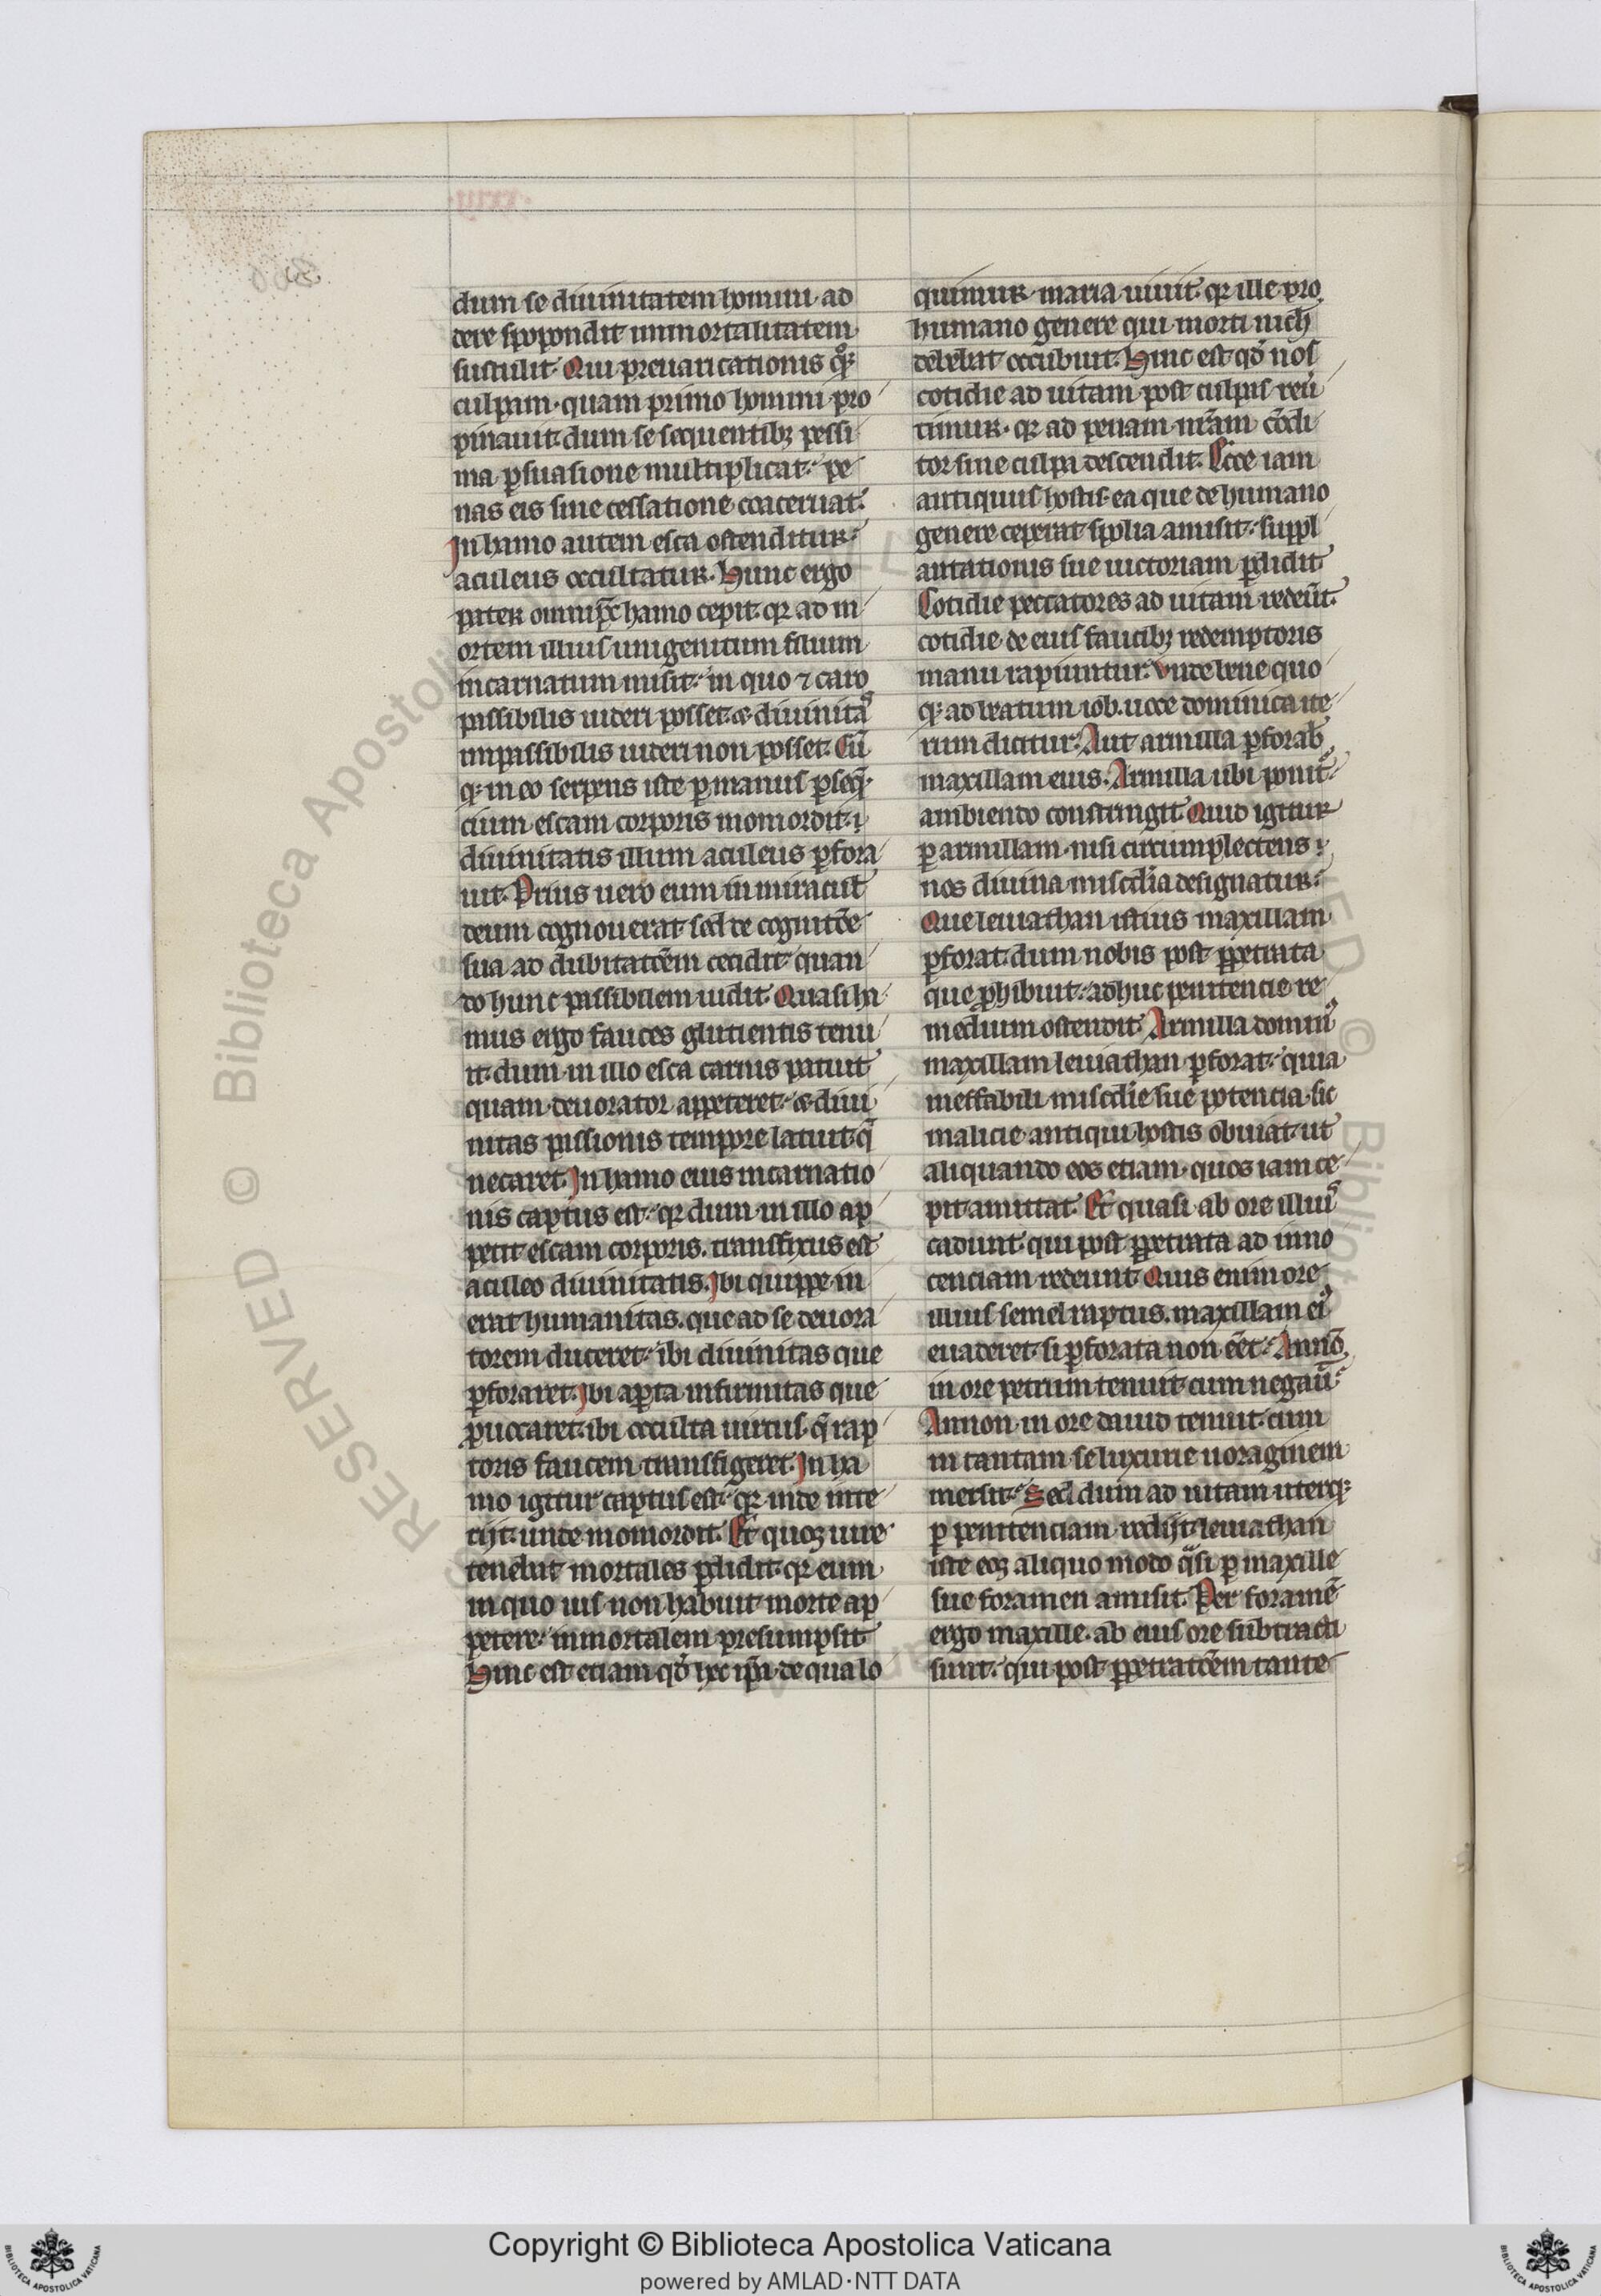 dum se diuinitatem homini ad
dere spopondit inmortalitatem
sustulit. Qui preuaricationis qͦꝫ
culpam. quam primo homini pro
pinauit. dum se sequentibꝫ pessi
ma ꝑsuasione multiplicat. pe
nas eis sine cessatione coaceruat.
In hamo autem esca ostenditur.
aculeus occultatur. Hunc ergo
pater omnip̄s hamo cepit. qꝛ ad m
ortem illius unigenitum filium
incarnatum misit. in quo ⁊ caro
passibilis uideri posset. & diuinitaꝰ
impassibilis uideri non posset. Cū
qꝫ in eo serpens iste ꝑ manus ꝑseq̄
cium escam corporis momordit.
diuinitatis illum aculeus ꝑfora
uit. Prius uero eum in miracul̄
deum cognouerat. sed de cognitōe
sua ad dubitatōem cecidit. quan
do hunc passibilem uidit. Quasi ha
mus ergo fauces glutientis tenu
it. dum in illo esca carnis patuit
quam deuorator appeteret. & diui
nitas passionis tempore latuit. q̄
necaret. In hamo eius incarnatio
nis captus est. qꝛ dum in illo ap
petit escam corporis. transfixus est
aculeo diuinitatis. Ibi quippe in
erat humanitas. que ad se deuora
torem duceret. ibi diuinitas que
ꝑforaret. Ibi aꝑta infirmitas que
ꝓuocaret. ibi occulta uirtus. q̄ rap
toris faucem transfigeret. In ha
mo igitur captus est. qꝛ inde inte
rijt. unde momordit. Et quos iure
tenebat mortales ꝑdidit. qꝛ eum
in quo ius non habuit morte ap
petere. inmortalem presumpsit
Hinc est etiam qd̄ hec ip̄a de qua lo
quimur maria uiuit. qꝛ ille pro
humano genere qui morti nich̄
debebat occubuit. Hinc est qd̄ nos
cotidie ad uitam post culpas reu̅
timur. qꝛ ad penam nr̄am cōdi
tor sine culpa descendit. Ecce iam
antiquus hostis ea que de humano
genere ceperat spolia amisit. suppl
antationis sue uictoriam ꝑdidit
Cotidie peccatores ad uitam redeūt.
cotidie de eius faucibꝫ redemptoris
manu rapiuntur. Vnde bene quo
qꝫ ad beatum iob. uoce dominica ite
rum dicitur. Aut armilla ꝑforab̄
maxillam eius. Armilla ubi ponit᷑
ambiendo constringit. Quid igitur
ꝑ armillam. nisi circumplectens
nos diuina misc̄dia designatur.
Que leuiathan istius maxillam
ꝑforat. dum nobis post ꝑpetrata
que ꝓhibuit. adhuc penitencie re
medium ostendit. Armilla dominꝰ
maxillam leuiathan ꝑforat. quia
ineffabili misc̄die sue potencia. sic
malicie antiqui hostis obuiat. ut
aliquando eos etiam. quos iam ce
pit amittat. Et quasi ab ore illiuꝰ
cadunt. qui post ꝑpetrata ad inno
cenciam redeunt. Quis enim ore
illius semel raptus. maxillam eiꝰ
euaderet. si ꝑforata non eēt. Annō
in ore petrum tenuit cum negau̅
Annon in ore dauid tenuit. cum
in tantam se luxurie uoraginem
mersit. Sed dum ad uitam uterqꝫ
ꝑ penitenciam redijt. leuiathan
iste eos aliquo modo q̄si ꝑ maxille
sue foramen amisit. Per foramē
ergo maxille. ab eius ore subtracti
sunt. qui post ꝑpetratōem tante
Copyright © Biblioteca Apostolica Vaticana
powered by AMLAD·NTT DATA